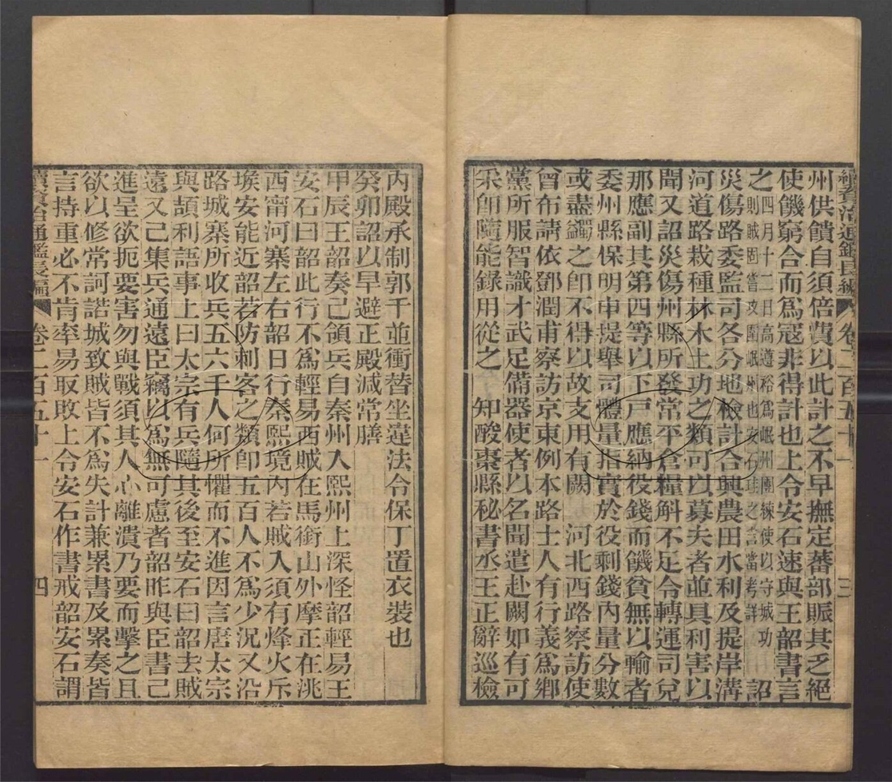 續資治通鑑長編 卷二百五十一 三
州供饋自須倍費以此計之不早撫定蕃部賑其乏絕
使饑窮合而爲寇非得計也上令安石速與王韶書言
之四月十二日高遵裕爲岷州團練使以守城功
則賊圍當攻圍岷州也安石云之言當考詳 詔
災傷路委監司各分地檢計合興農田水利及堤岸溝
河道路栽種林木土功之類可以募夫者並具利害以
聞又詔災傷州縣所發常平倉糧斛不足令轉運司兌
那應副其第四等以下戸應納役錢而饑貧無以輸者
委州縣保明申提舉司體量指實於役剩錢內量分數
或盡蠲之即不得以故支用有闕 河北西路察訪使
曾布請依鄧潤甫察訪京東例本路士人有行義爲鄉
黨所服智識才武足備器使者以名聞遣赴闕如有可
采即隨能錄用從之 知酸棗縣秘書丞王正辭巡檢
內殿承制郭千並衝替坐違法令保丁置衣裝也
癸卯詔以旱避正殿減常膳
甲辰王韶奏己領兵自秦州入熙州上深怪韶輕易王
安石曰韶此行不爲輕易西賊在馬銜山外摩正在洮
西甯河寨左右韶日行秦熙境內若賊入須有烽火斥
埃安能近韶若防刺客之類即五百人不爲少況又沿
路城寨所收兵五六千人何所懼而不進因言唐太宗
與頡利語事上曰太宗有兵隨其後至安石曰韶去賊
遠又己集兵通遠臣竊以爲無可慮者韶昨與臣書己
進呈欲扼要害勿與戰須其人心離潰乃要而擊之且
欲以修常訶諾城致賊皆不爲失計兼累書及累奏皆
言持重必不肯率易取敗上令安石作書戒韶安石謂
續資治通鑑長編 卷二百五十一 四